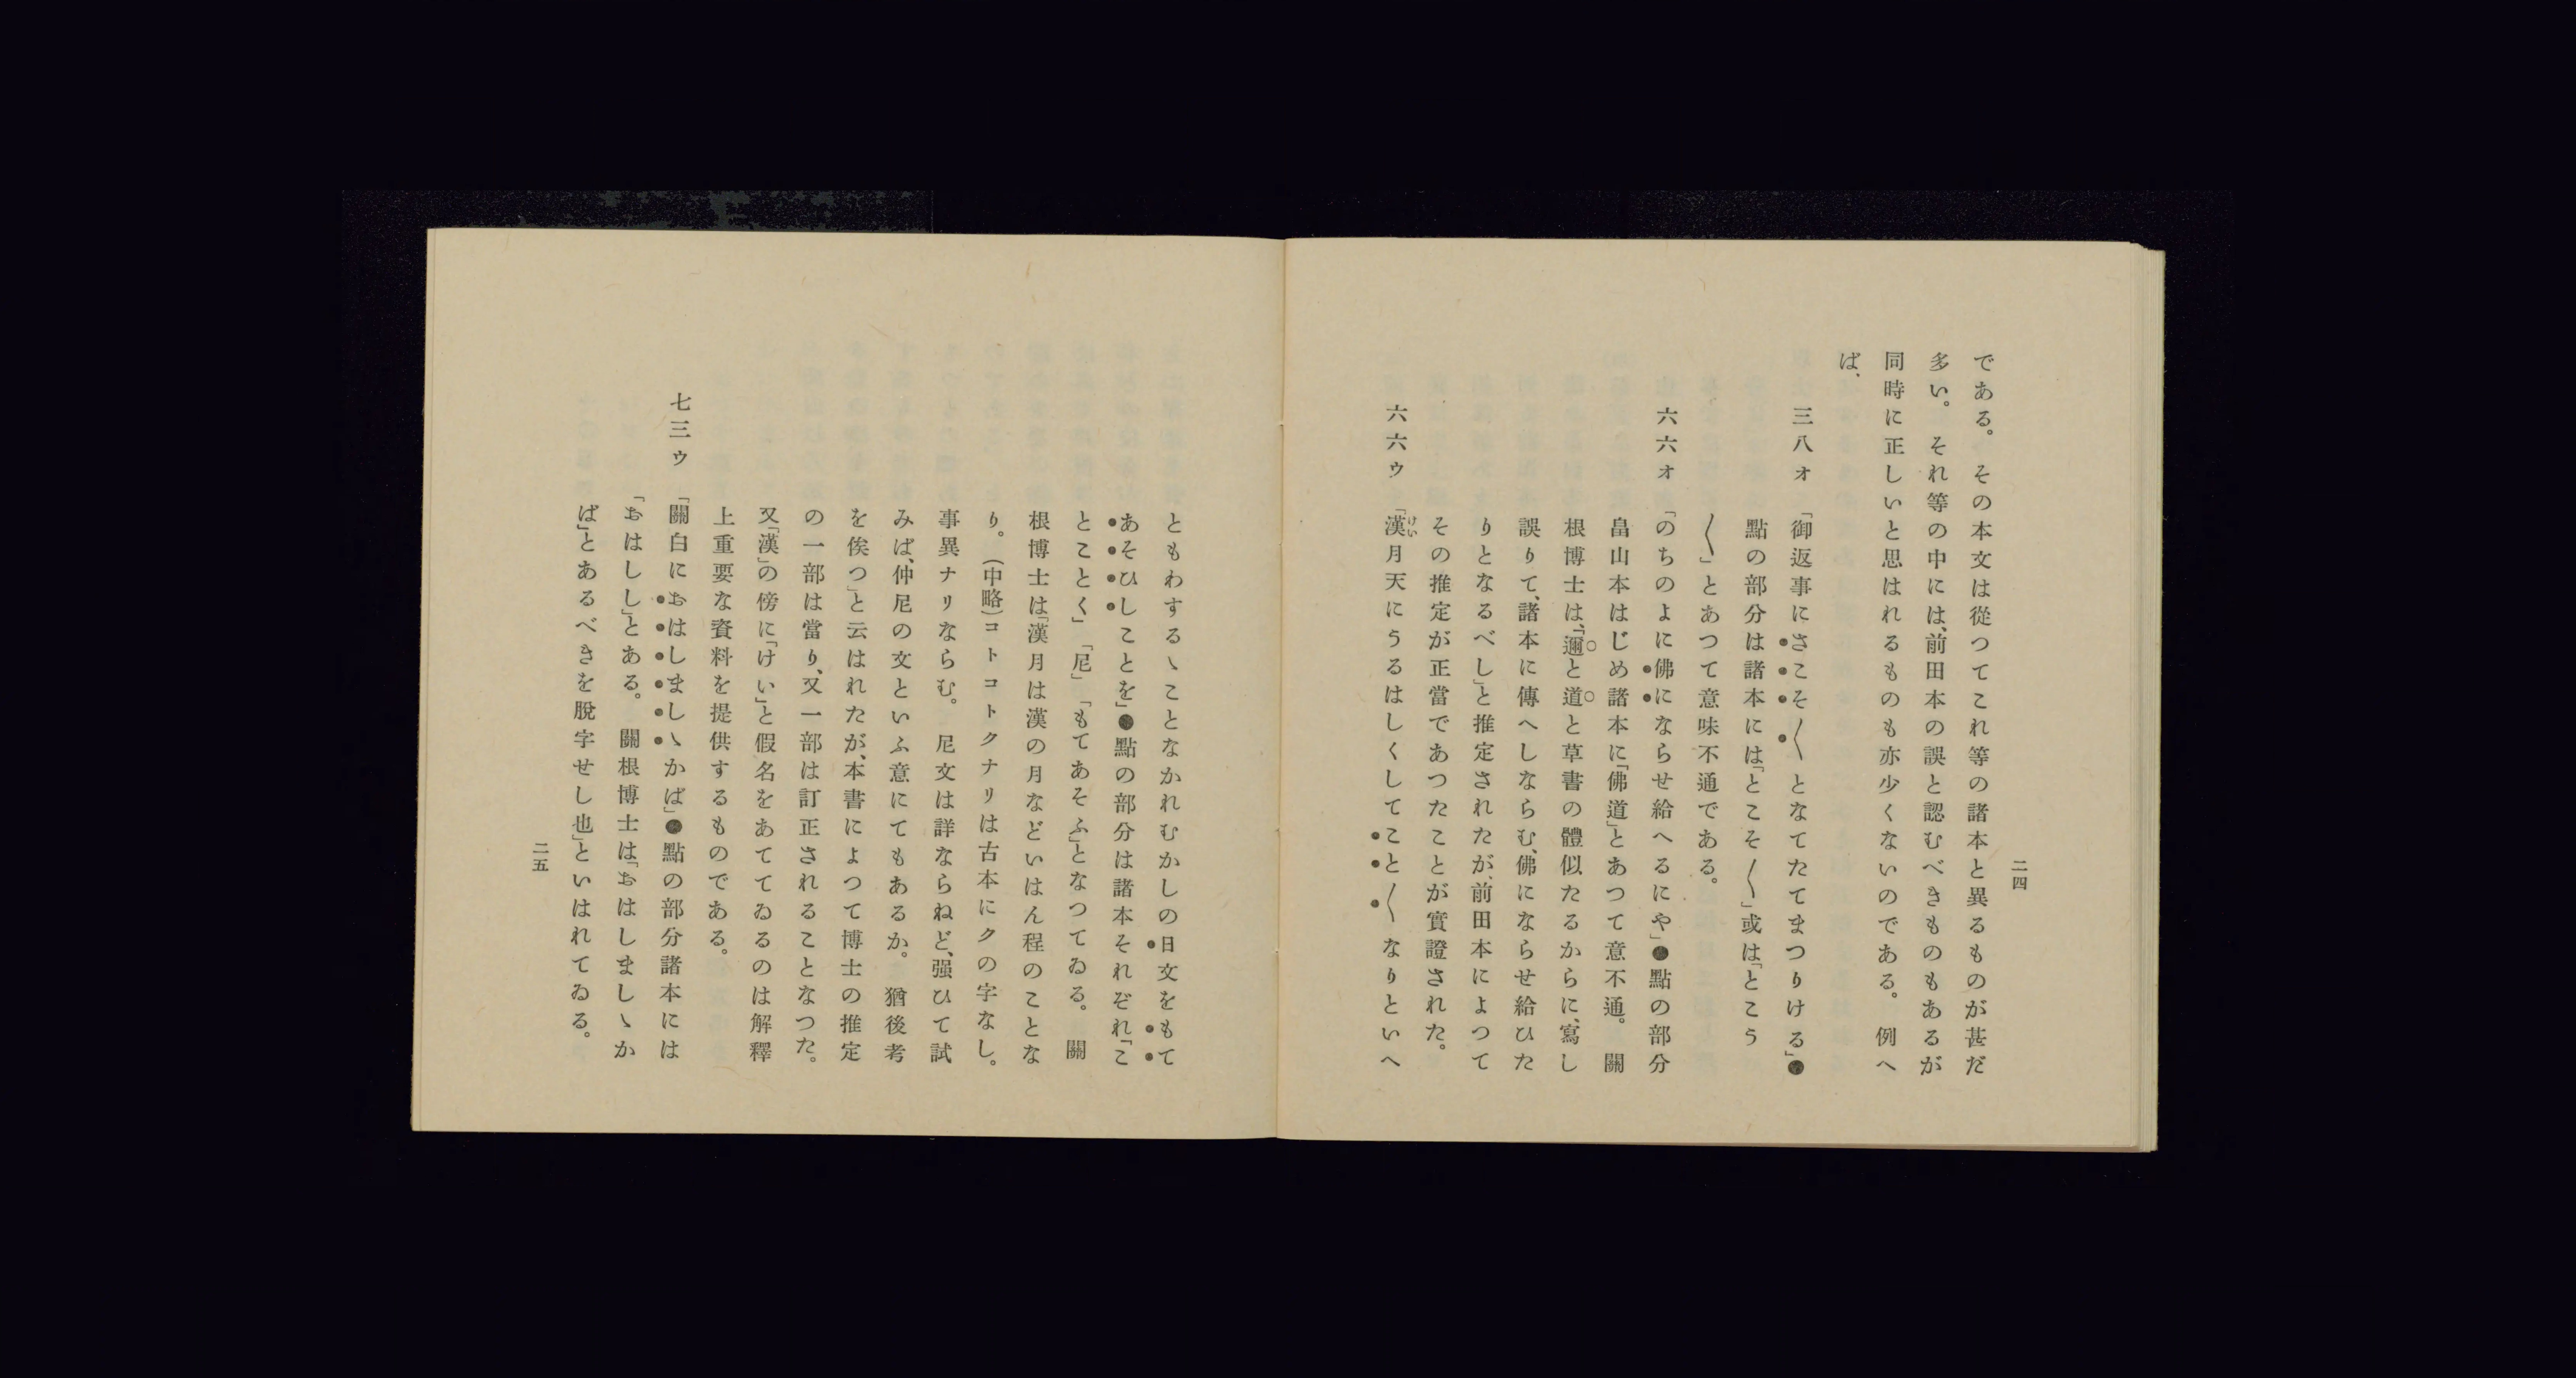 二四
である。その本文は從つてこれ等の諸本と異るものが甚だ
多い。それ等の中には、前田本の誤と認むべきものもあるが
同時に正しいと思はれるものも亦少くないのである。例へ
ば、
三八オ「御返事にさこそ〳〵となてたてまつりける」●
點の部分は諸本には「とこそ〳〵」或は「とこう
〳〵」とあつて意味不通である。
六六オ「のちのよに佛にならせ給へるにや」●點の部分
畠山本はじめ諸本に「佛道」とあつて意不通。關
根博士は、「邇と道と草書の體似たるからに、寫し
誤りて、諸本に傳へしならむ、佛にならせ給ひた
りとなるべし」と推定されたが、前田本によつて
その推定が正當であつたことが實證された。
六六ウ「漢月天にうるはしくしてこと〳〵なりといへ
けい
ともわするゝことなかれむかしの日文をもて
あそひしことを」●點の部分は諸本それぞれ「こ
とことく」「尼」「もてあそふ」となつてゐる。關
根博士は「漢月は漢の月などいはん程のことな
り。(中略)コトコトクナリは古本にクの字なし。
事異ナリならむ。尼文は詳ならねど、强ひて試
みば、仲尼の文といふ意にてもあるか。猶後考
を俟つ」と云はれたが、本書によつて博士の推定
の一部は當り、又一部は訂正されることなつた。
又「漢」の傍に「けい」と假名をあてゝゐるのは解釋
上重要な資料を提供するものである。
七三ウ「關白におはしましゝかば」●點の部分諸本には
「おはしし」とある。關根博士は「おはしましゝか
ば」とあるべきを脫字せし也」といはれてゐる。
二五